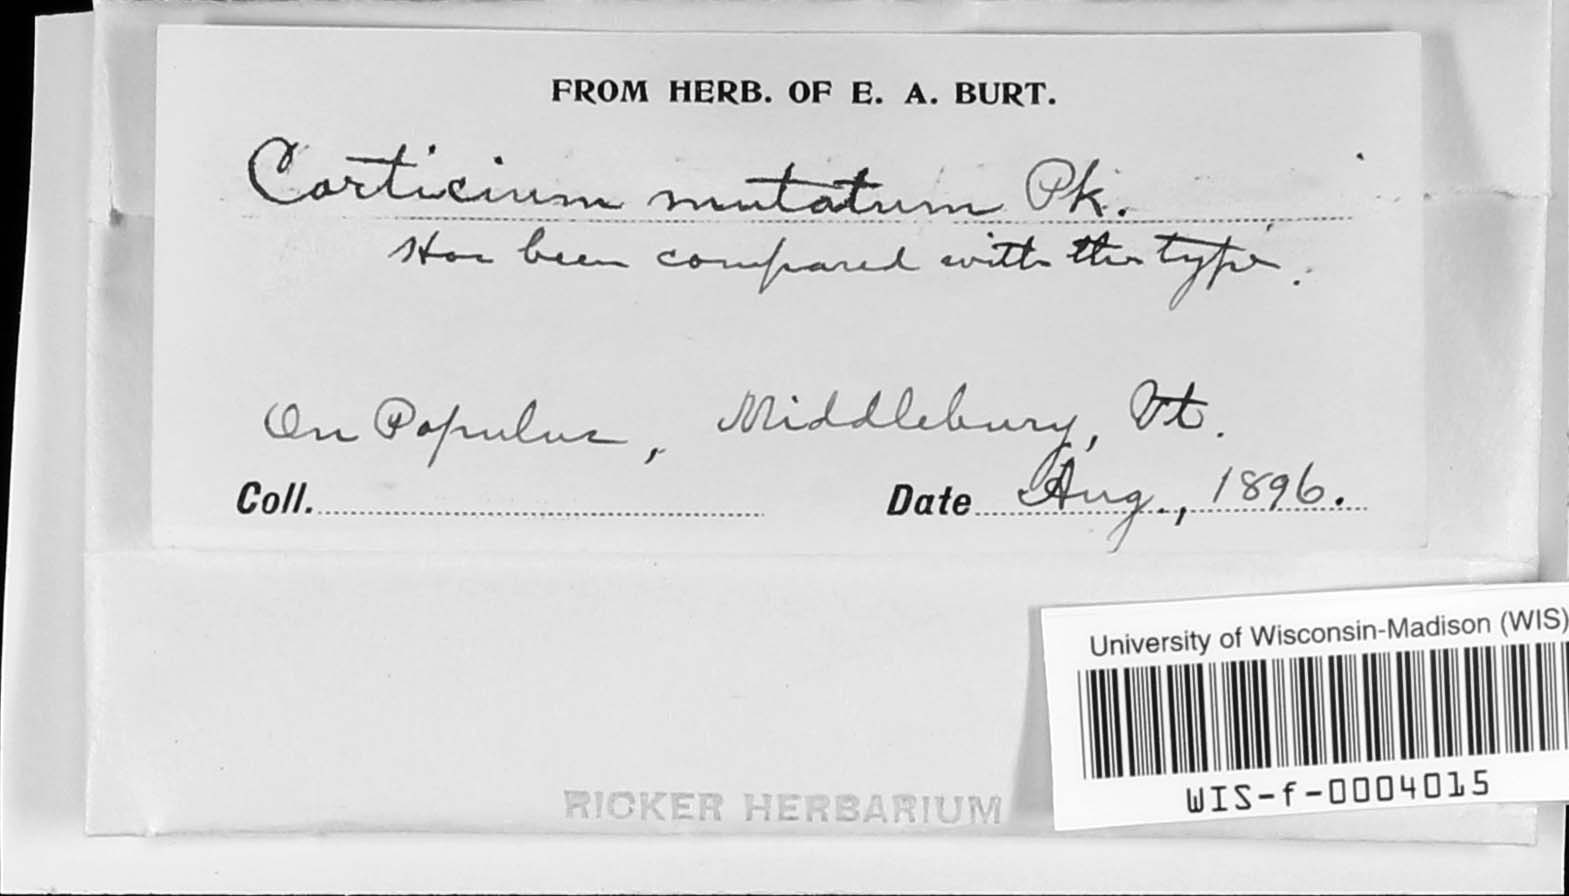 FROM HERB. OF E. A. BURT.
Corticium mutatum Pk.
Has been compared with the type.
On Populus, Middlebury, Vt.
Coll. Date Aug., 1896.
University of Wisconsin-Madison (WIS)
WIS-f-0004015
RICKER HERBARIUM